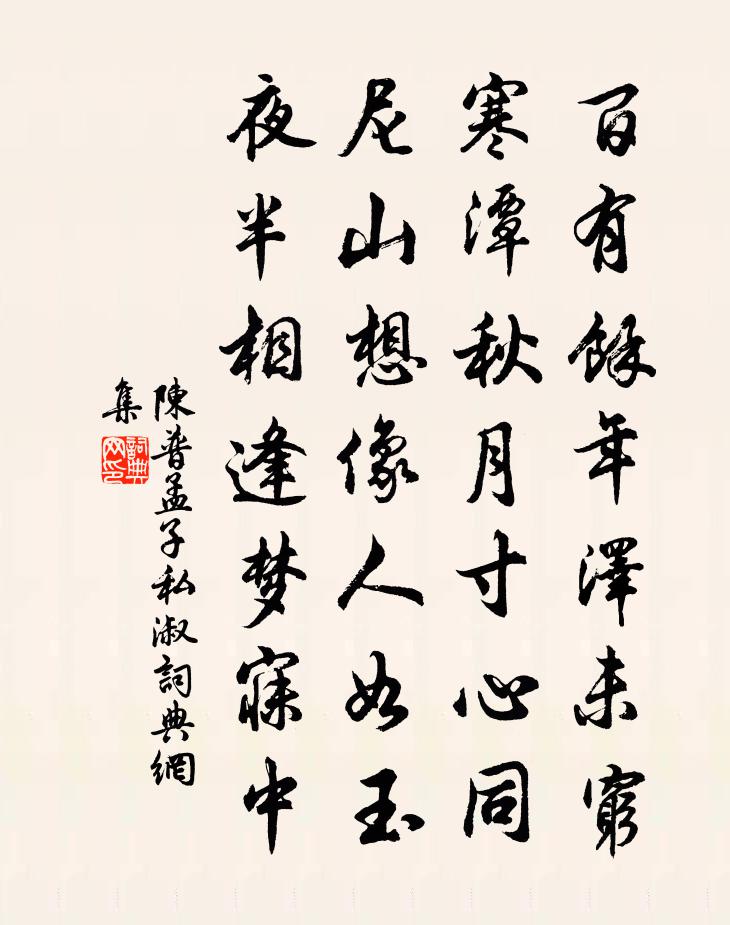 百有餘年澤未窮
寒潭秋月寸心同
尼山想像人如玉
夜半相逢梦寐中
陳普孟子私淑詞典網
集
詞典
网印